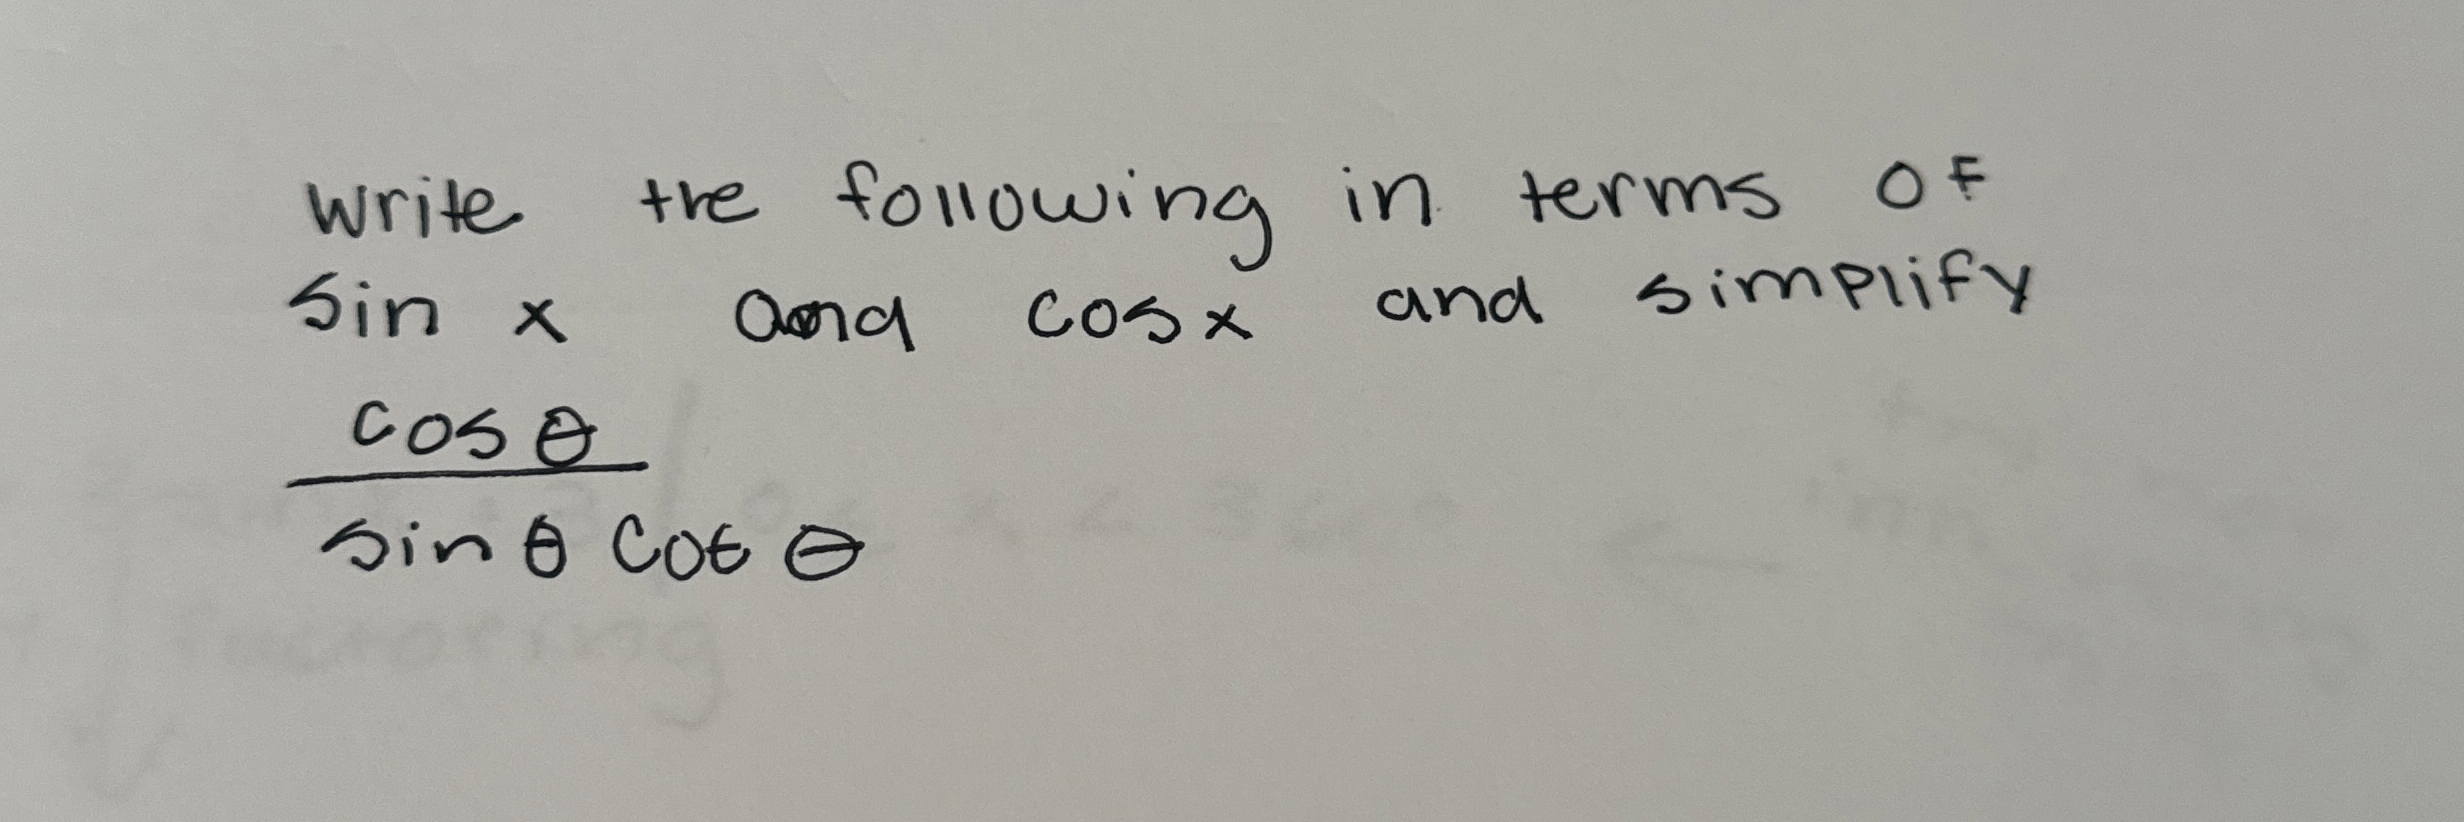 write the following in terms of
sin x and cosx and simplify
cos θ
sin θ cot θ
factoring